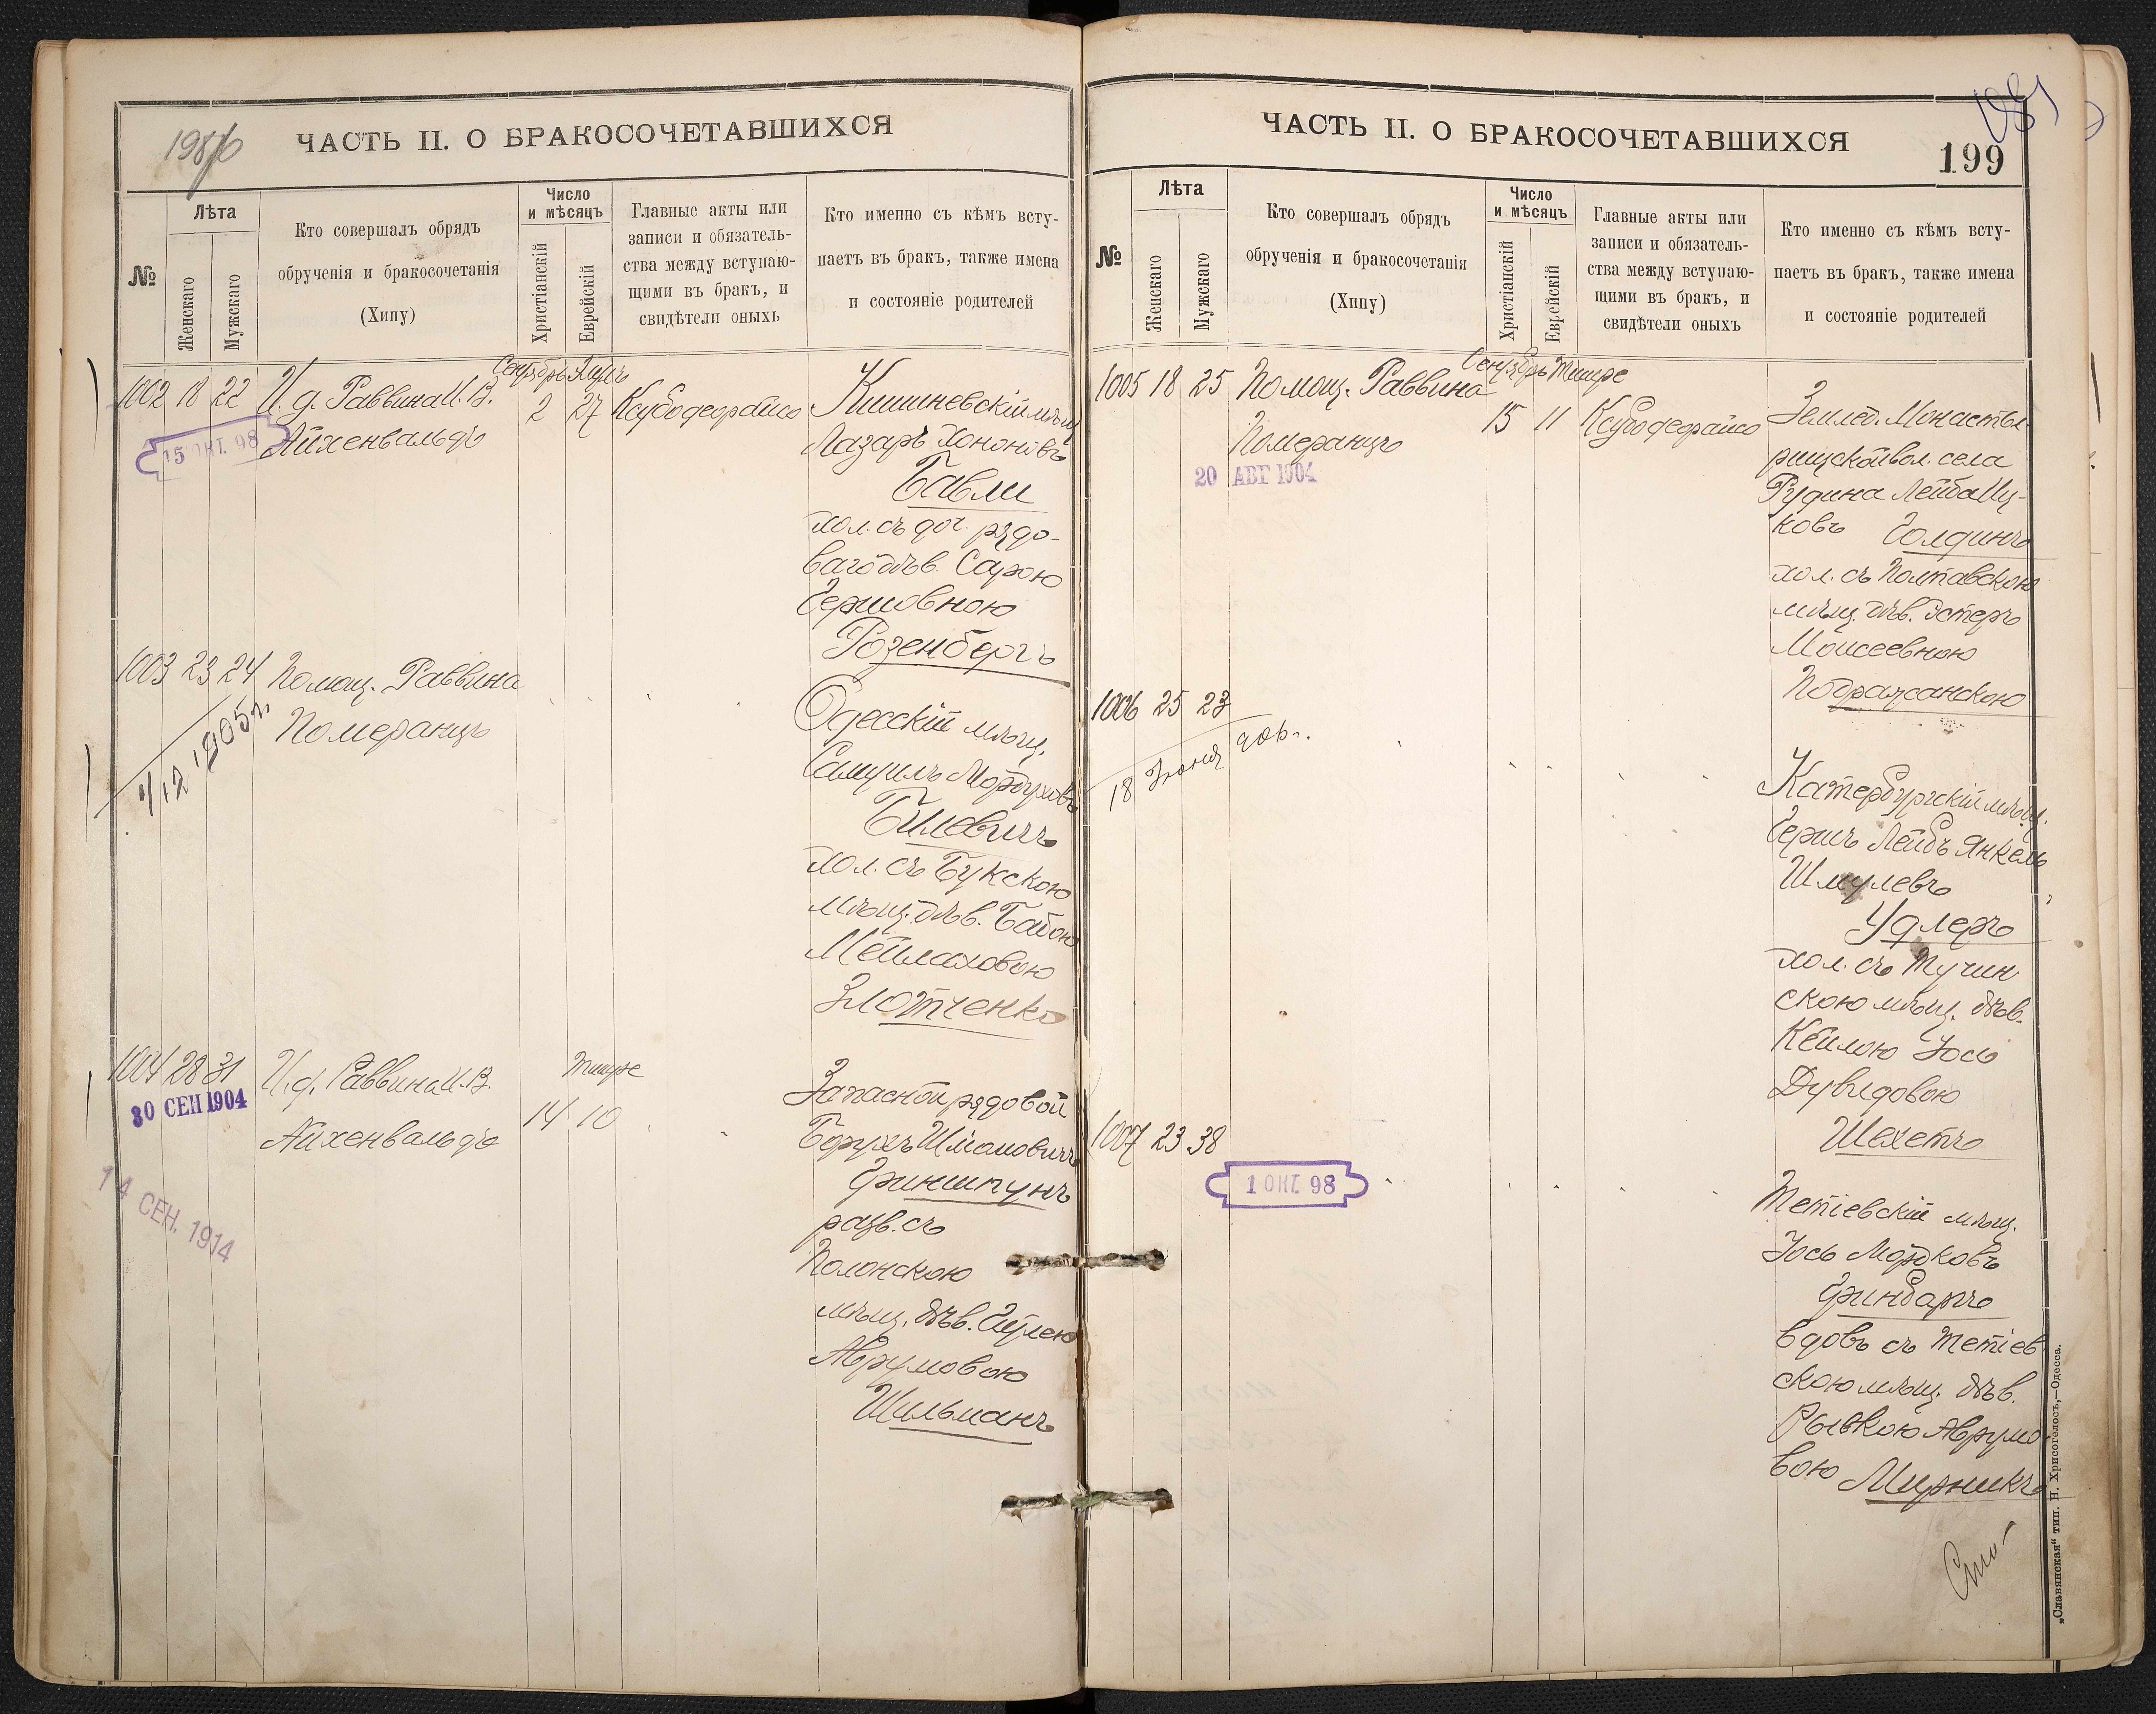 198/6
ЧАСТЬ II. О БРАКОСОЧЕТАВШИХСЯ
№
Лѣта
Женскаго
Мужскаго
Кто совершалъ обрядъ
обрученія и бракосочетанія
(Хипу)
Число
и мѣсяцъ
Христіанскій
Еврейскій
Главные акты или
записи и обязатель-
ства между вступаю-
щими въ бракъ, и
свидѣтели оныхъ
Кто именно съ кѣмъ всту-
паетъ въ бракъ, также имена
и состояніе родителей
1002 18 22 И. д. Раввина И. В.
Айхенвальдъ
15 ОКТ. 98
Сентябрь Элулъ
2 27 Ксубодеорайсо
Кишиневскій мѣщ
Лазарь Хононовъ
Бавли
хол. съ доч. рядо-
ваго дѣв. Сарою
Гершовною
Розенбергъ
1003 23 24 Помощ. Раввина
Померанцъ
1/12 1905 г.
Одесскій мѣщ.
Самуилъ Мордуховъ
Билевичъ
хол. съ Букскою
мѣщ. дѣв. Бабою
Мейлаховою
Злотченко
1004 28 31 И. д. Раввина И. В.
Айхенвальдъ
30 СЕП 1904
14 СЕН. 1914
Тишре
14 10
Запасной рядовой
Борухъ Шмоловичъ
Гриншпунъ
разв. съ
Полонскою
мѣщ. дѣв. Сурлею
Аврумовою
Шильманъ
ЧАСТЬ II. О БРАКОСОЧЕТАВШИХСЯ
199
№
Лѣта
Женскаго
Мужскаго
Кто совершалъ обрядъ
обрученія и бракосочетанія
(Хипу)
Число
и мѣсяцъ
Христіанскій
Еврейскій
Главные акты или
записи и обязатель-
ства между вступаю-
щими въ бракъ, и
свидѣтели оныхъ
Кто именно съ кѣмъ всту-
паетъ въ бракъ, также имена
и состояніе родителей
1005 18 25 Помощ. Раввина
Померанцъ
20 АВГ 1904
Сентябрь Тишре
15 11 Ксубодеорайсо
Землед. Монасты-
рищской вол. села
Рудина Лейба Иц-
ковъ Голдинъ
хол. съ Полтавскою
мѣщ. дѣв. Эстеръ
Моисеевною
Пображанскою
1006 25 23
18 Іюня 906 г.
Катербургскій мѣщ.
Гершъ Лейбъ Янкель
Шмулевъ
Удлеръ
хол. съ Тучин
скою мѣщ. дѣв.
Кейлою Іось
Дувидовою
Шехетъ
1007 23 38
1 ОКТ. 98
Тетіевскій мѣщ.
Іось Мордковъ
Гринбаргъ
вдовъ съ Тетіев
скою мѣщ. дѣв.
Рывкою Аврумо
вою Мирникъ
„Славянская“ тип. Н. Хрисогелосъ,—Одесса.